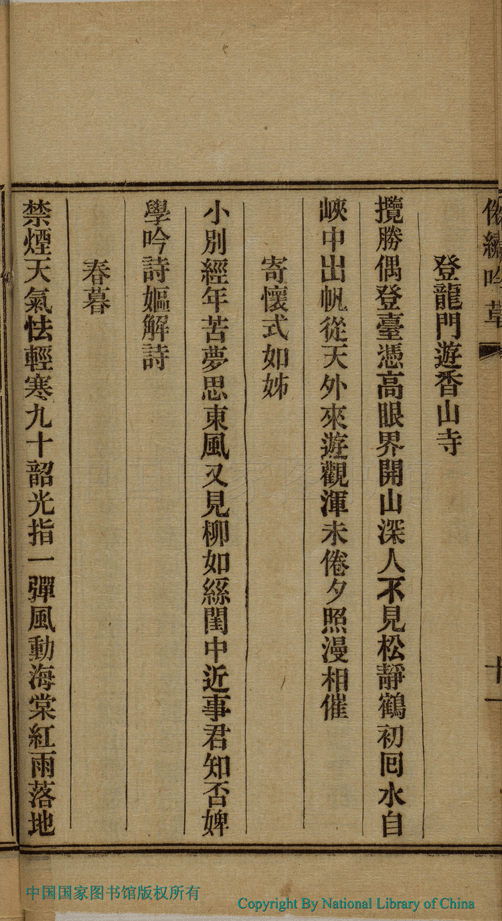 依繡吟草
十一
登龍門遊香山寺
攬勝偶登臺憑高眼界開山深人不見松靜鶴初回水自
峽中出帆從天外來遊觀渾未倦夕照漫相催
寄懷式如姊
小別經年苦夢思東風又見柳如絲閨中近事君知否婢
學吟詩嫗解詩
春暮
禁煙天氣怯輕寒九十韶光指一彈風動海棠紅雨落地
中国国家图书馆版权所有
Copyright By National Library of China